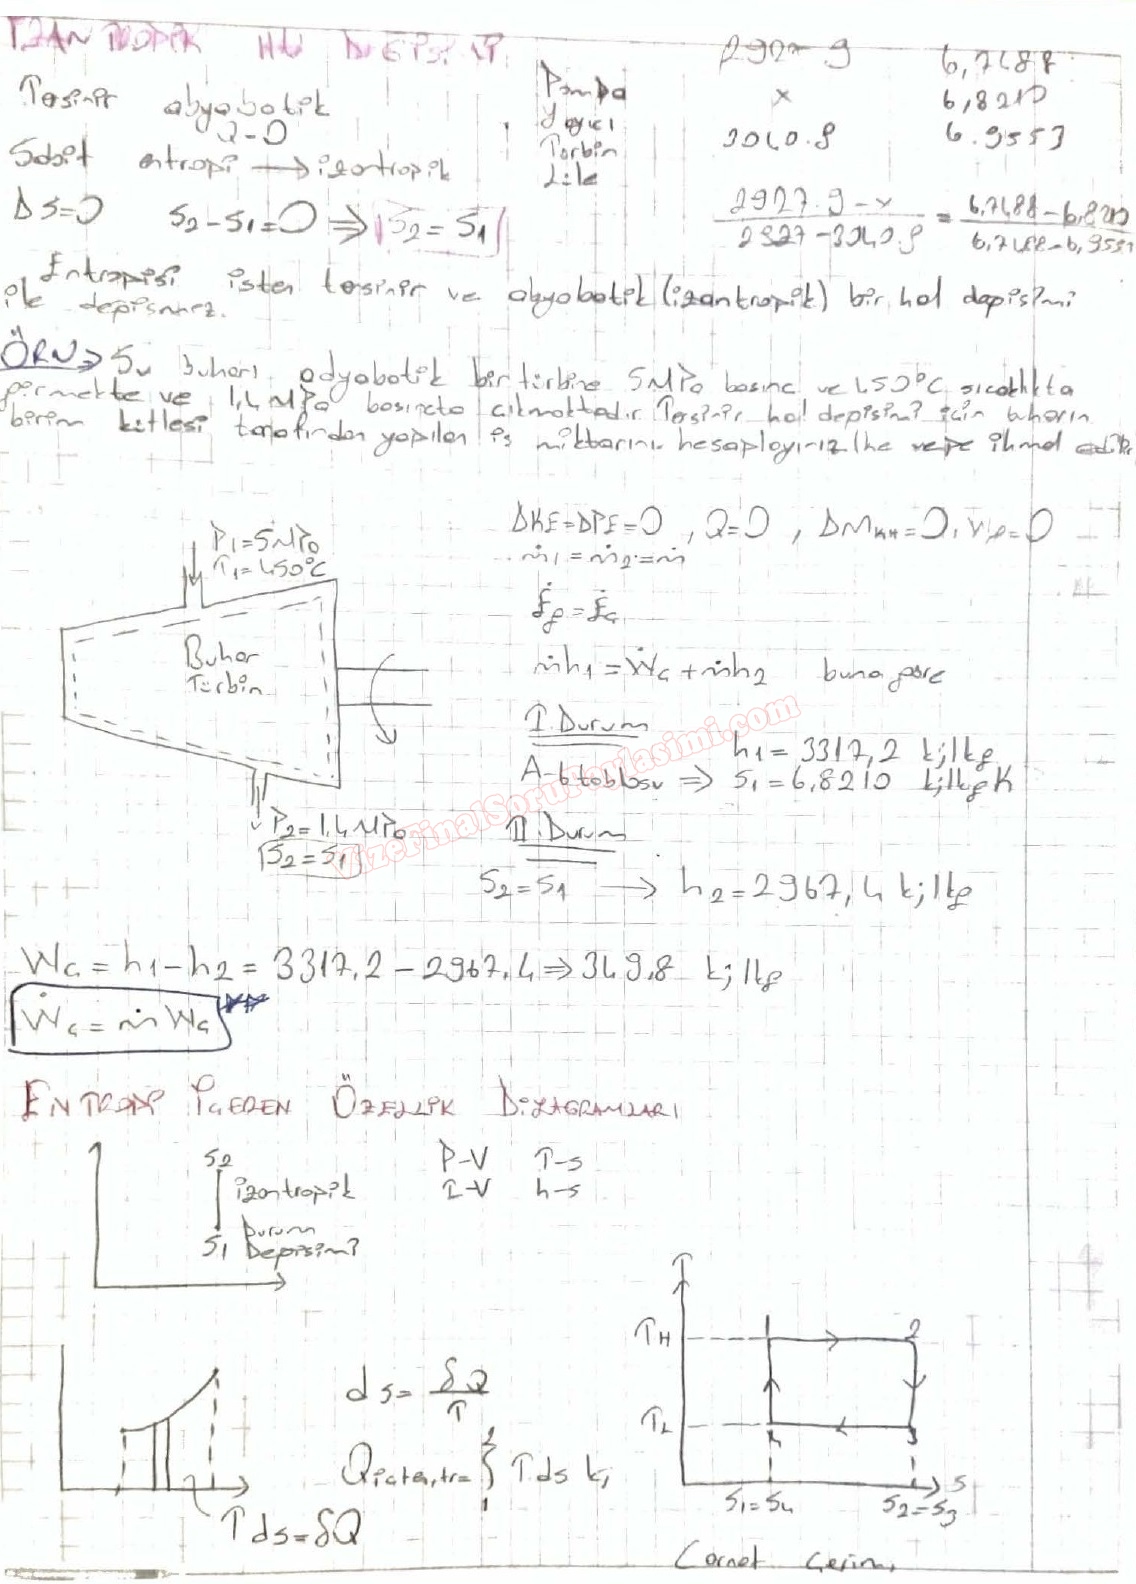 İZANTROPİK HAL DEĞİŞİMİ
Tersinir adyabatik
Q=0
Sabit entropi → izantropik
Δs=0 s2-s1=0 ⇒ s2=s1
Pompa
Yayıcı
Türbin
Lüle
2927.9 6,7488
x 6,8210
3040.8 6.9553
2927.9-x / 2927-3040.9 = 6,7488-6,8210 / 6,7488-6,9553
Entropisi isten tersinir ve adyabatik (izantropik) bir hal değişimi
ile değişmez.
ÖRN⇒ Su buharı adyabatik bir türbine 5MPa basınç ve 450°C sıcaklıkta
girmekte ve 1,4 MPa basınçta çıkmaktadır. Tersinir hal değişimi için buharın
birim kütlesi tarafından yapılan iş miktarını hesaplayınız. ke ve pe ihmal edilir
P1=5MPa
T1=450°C
Buhar
Türbin
P2=1,4 MPa
s2=s1
ΔKE=ΔPE=0 , Q=0 , ΔMKH=0, Wg=0
ṁ1=ṁ2=ṁ
Ėg=Ėç
ṁh1=Ẇç+ṁh2 buna göre
I. Durum
h1=3317,2 kj/kg
A-6 tablosu ⇒ s1=6,8210 kj/kgK
II. Durum
s2=s1 → h2=2967,4 kj/kg
VizeFinalSoruPaylasimi.com
Wç = h1-h2 = 3317,2-2967,4 ⇒ 349,8 kj/kg
Ẇç = ṁ Wç **
ENTROPİ İÇEREN ÖZELLİK DİYAGRAMLARI
s2
izantropik
Durum
s1 Değişimi
P-V T-s
T-V h-s
ds= δQ/T
Qiçten,tr= ∫ T ds kj
T ds=δQ
T
TH 1 2
TL 4 3
s
s1=s4 s2=s3
Carnot Çevrimi